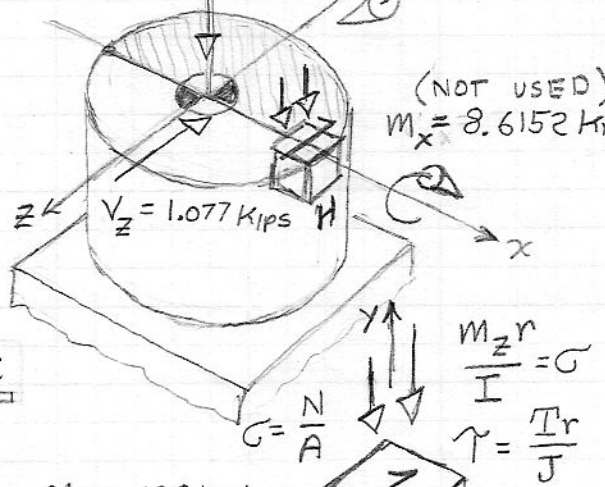 (NOT USED)
Mx = 8.6152 Ki
Z
Vz = 1.077 Kips
H
x
Y
Mz r / I = σ
σ = N / A
τ = Tr / J